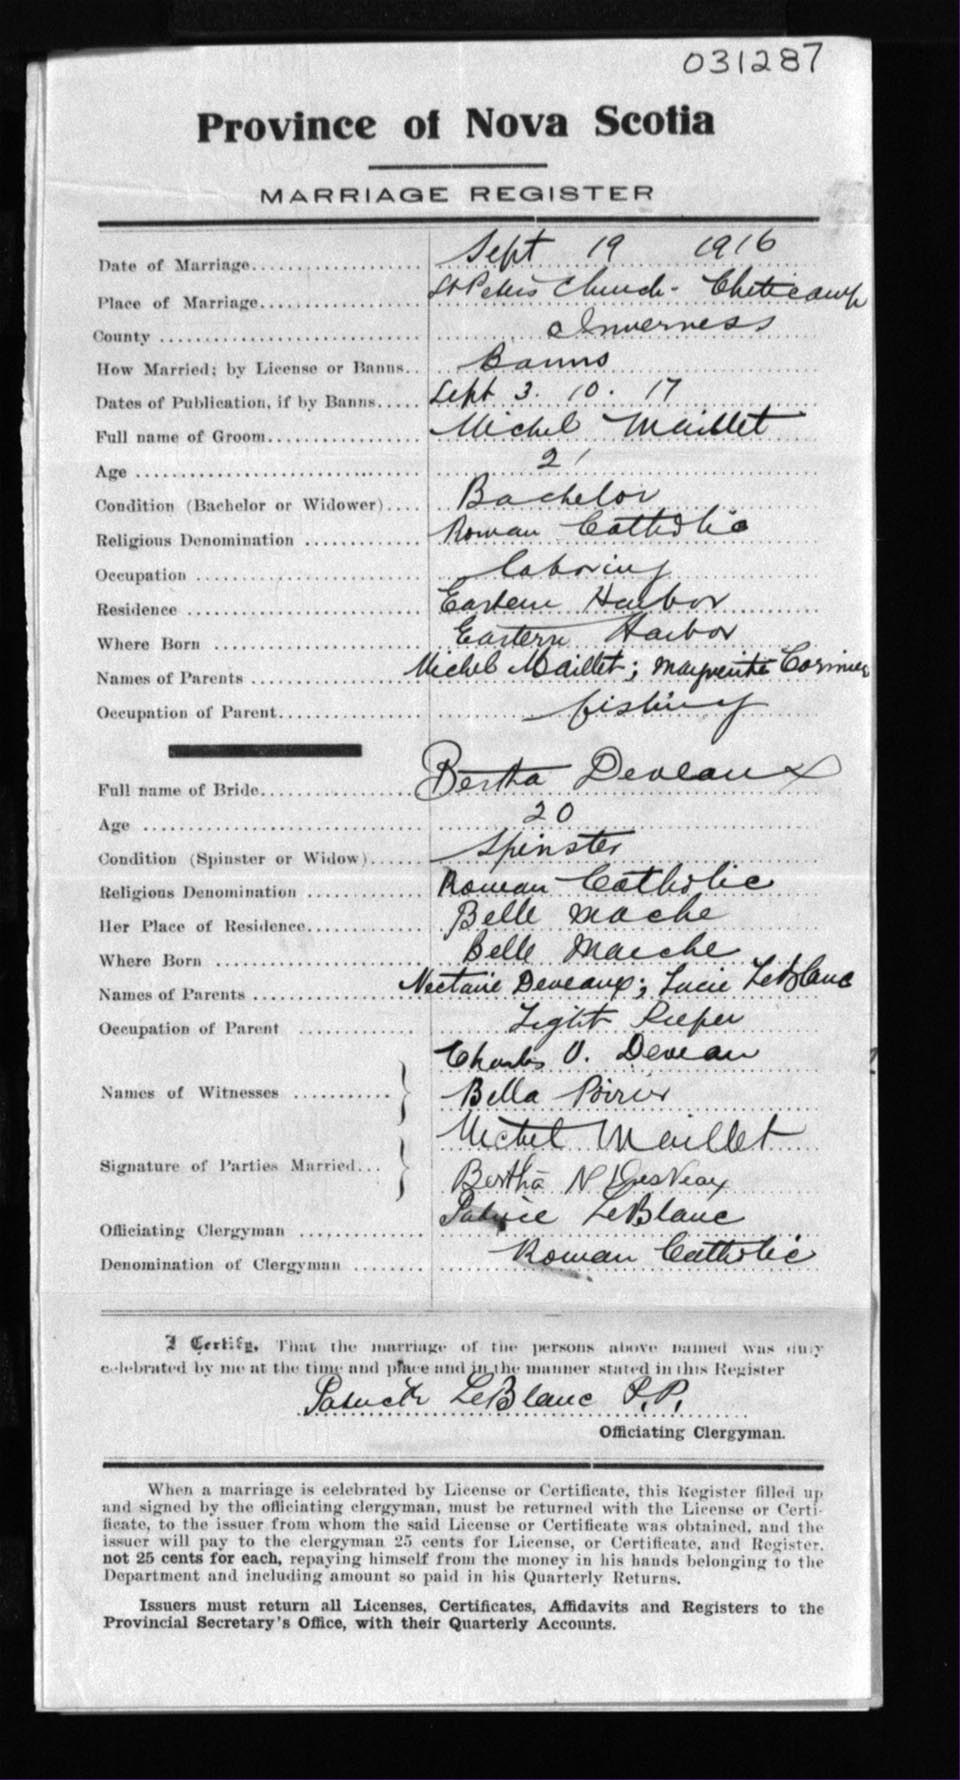 031287
Province of Nova Scotia
MARRIAGE REGISTER
Date of Marriage.................... Sept 19 1916
Place of Marriage.................... St Peters Church - Cheticamp
County .............................. Inverness
How Married; by License or Banns.. Banns
Dates of Publication, if by Banns..... Sept 3. 10. 17
Full name of Groom................... Michel Maillet
Age ................................. 21
Condition (Bachelor or Widower).... Bachelor
Religious Denomination .............. Roman Catholic
Occupation .......................... laboring
Residence ........................... Eastern Harbor
Where Born .......................... Eastern Harbor
Names of Parents .................... Michel Maillet; Marguerite Cormier
Occupation of Parent................. fishing
Full name of Bride................... Bertha Deveaux
Age ................................. 20
Condition (Spinster or Widow)...... Spinster
Religious Denomination .............. Roman Catholic
Her Place of Residence.............. Belle Mache
Where Born .......................... Belle Marche
Names of Parents .................... Nectaire Deveaux; Lucie LeBlanc
Occupation of Parent ................ Light Keeper
Charles V. Deveau
Names of Witnesses ........... } Bella Poirier
Michel Maillet
Signature of Parties Married... } Bertha N DesVeaux
Officiating Clergyman ............... Patrice LeBlanc
Denomination of Clergyman ........ Roman Catholic
I Certify, That the marriage of the persons above named was duly
celebrated by me at the time and place and in the manner stated in this Register
Patrick LeBlanc P.P.
Officiating Clergyman.
When a marriage is celebrated by License or Certificate, this Register filled up
and signed by the officiating clergyman, must be returned with the License or Certi-
ficate, to the issuer from whom the said License or Certificate was obtained, and the
issuer will pay to the clergyman 25 cents for License, or Certificate, and Register,
not 25 cents for each, repaying himself from the money in his hands belonging to the
Department and including amount so paid in his Quarterly Returns.
Issuers must return all Licenses, Certificates, Affidavits and Registers to the
Provincial Secretary's Office, with their Quarterly Accounts.